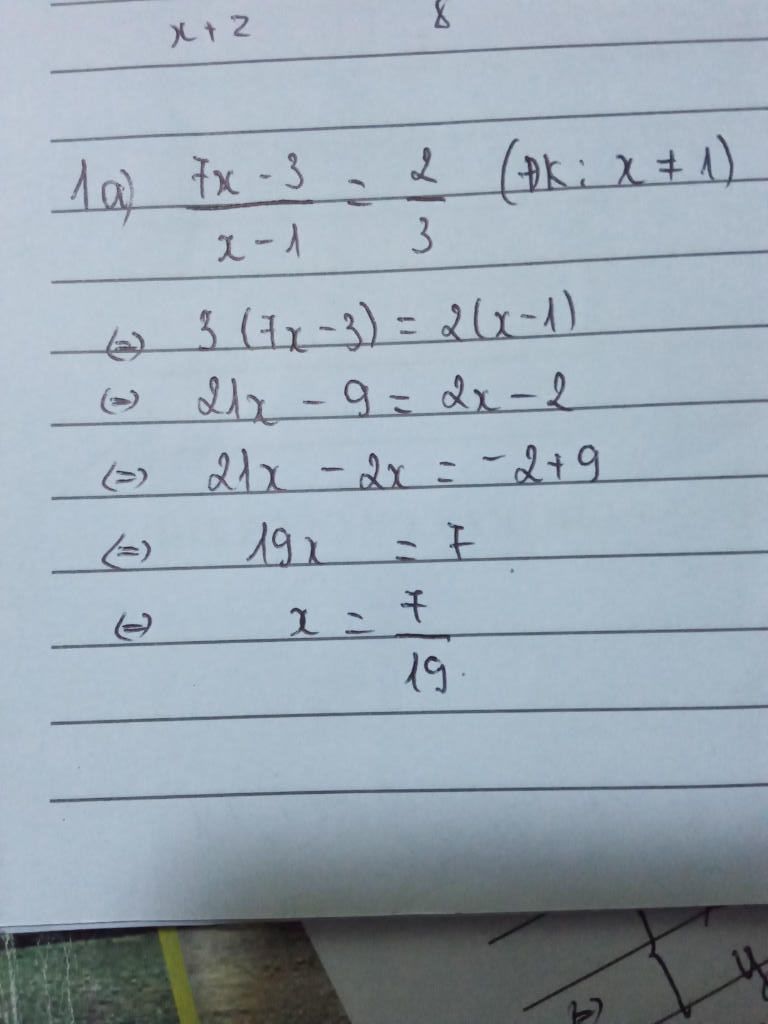 x + 2 8
1a) 7x - 3 / x - 1 = 2 / 3 (ĐK: x ≠ 1)
(=) 3 (7x - 3) = 2(x - 1)
(=) 21x - 9 = 2x - 2
(=) 21x - 2x = -2 + 9
(=) 19x = 7
(=) x = 7 / 19.
b) y